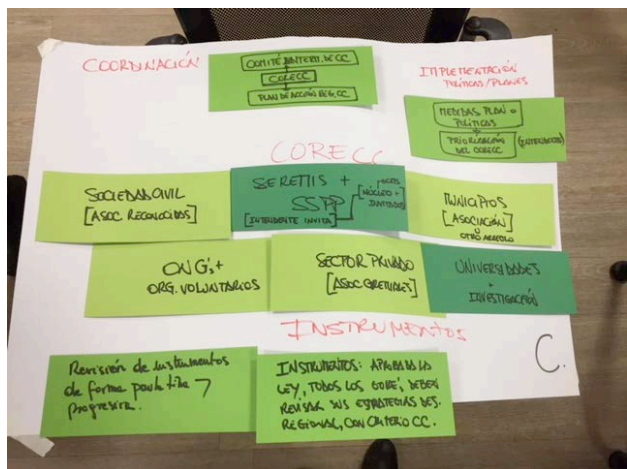 COORDINACIÓN
COMITÉ INTERM. DE CC
CORECC
PLAN DE ACCIÓN REG. CC
IMPLEMENTACIÓN
POLÍTICAS/PLANES
MEDIDAS PLAN o
POLÍTICAS
PRIORIZACIÓN
DEL CORECC
(INTENDENTE)
CORECC
SOCIEDAD CIVIL
[ASOC. RECONOCIDAS]
SEREMIS +
SSPP
[INTENDENTE INVITA]
[NÚCLEO +
INVITADOS]
MUNICIPIOS
[ASOCIACIÓN]
U
OTRO ARREGLO
ONG's +
ORG. VOLUNTARIOS
SECTOR PRIVADO
[ASOC. GREMIALES]
UNIVERSIDADES
+
INVESTIGACIÓN
INSTRUMENTOS
C.
Revisión de instrumentos
de forma paulatina 7
progresiva.
INSTRUMENTOS: APROBADA LA
LEY, TODOS LOS GORE, DEBEN
REVISAR SUS ESTRATEGIAS DES.
REGIONAL, CON CRITERIO CC.